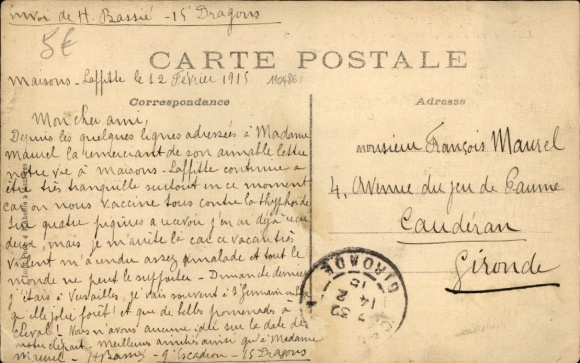 Envoi de H. Bassié - 15e Dragons
5€
CARTE POSTALE
Maisons-Laffitte le 12 Février 1915
110486
Correspondance
Adresse
Mon cher ami,
Depuis les quelques lignes adressées à Madame
Maurel la remerciant de son aimable lettre
notre vie à Maisons-Laffitte continue à
être très tranquille surtout en ce moment
car on nous vaccine tous contre la thyphoïde
Sur quatre piqûres à recevoir j'en ai déjà reçu
deux, mais je m'arrête là car ce vaccin très
violent m'a rendu assez malade et tout le
monde ne peut le supporter - Dimanche dernier
j'étais à Versailles, je vais souvent à St Germain
quelle jolie forêt! et que de belles promenades à
cheval! Nous n'avons aucune idée sur la date de
notre départ - Meilleures amitiés ainsi qu'à Madame
Maurel - H Bassié - 9e Escadron - 15 Dragons
Monsieur François Maurel
4, Avenue du jeu de Paume
Caudéran
Gironde
GIRONDE
14 2
15